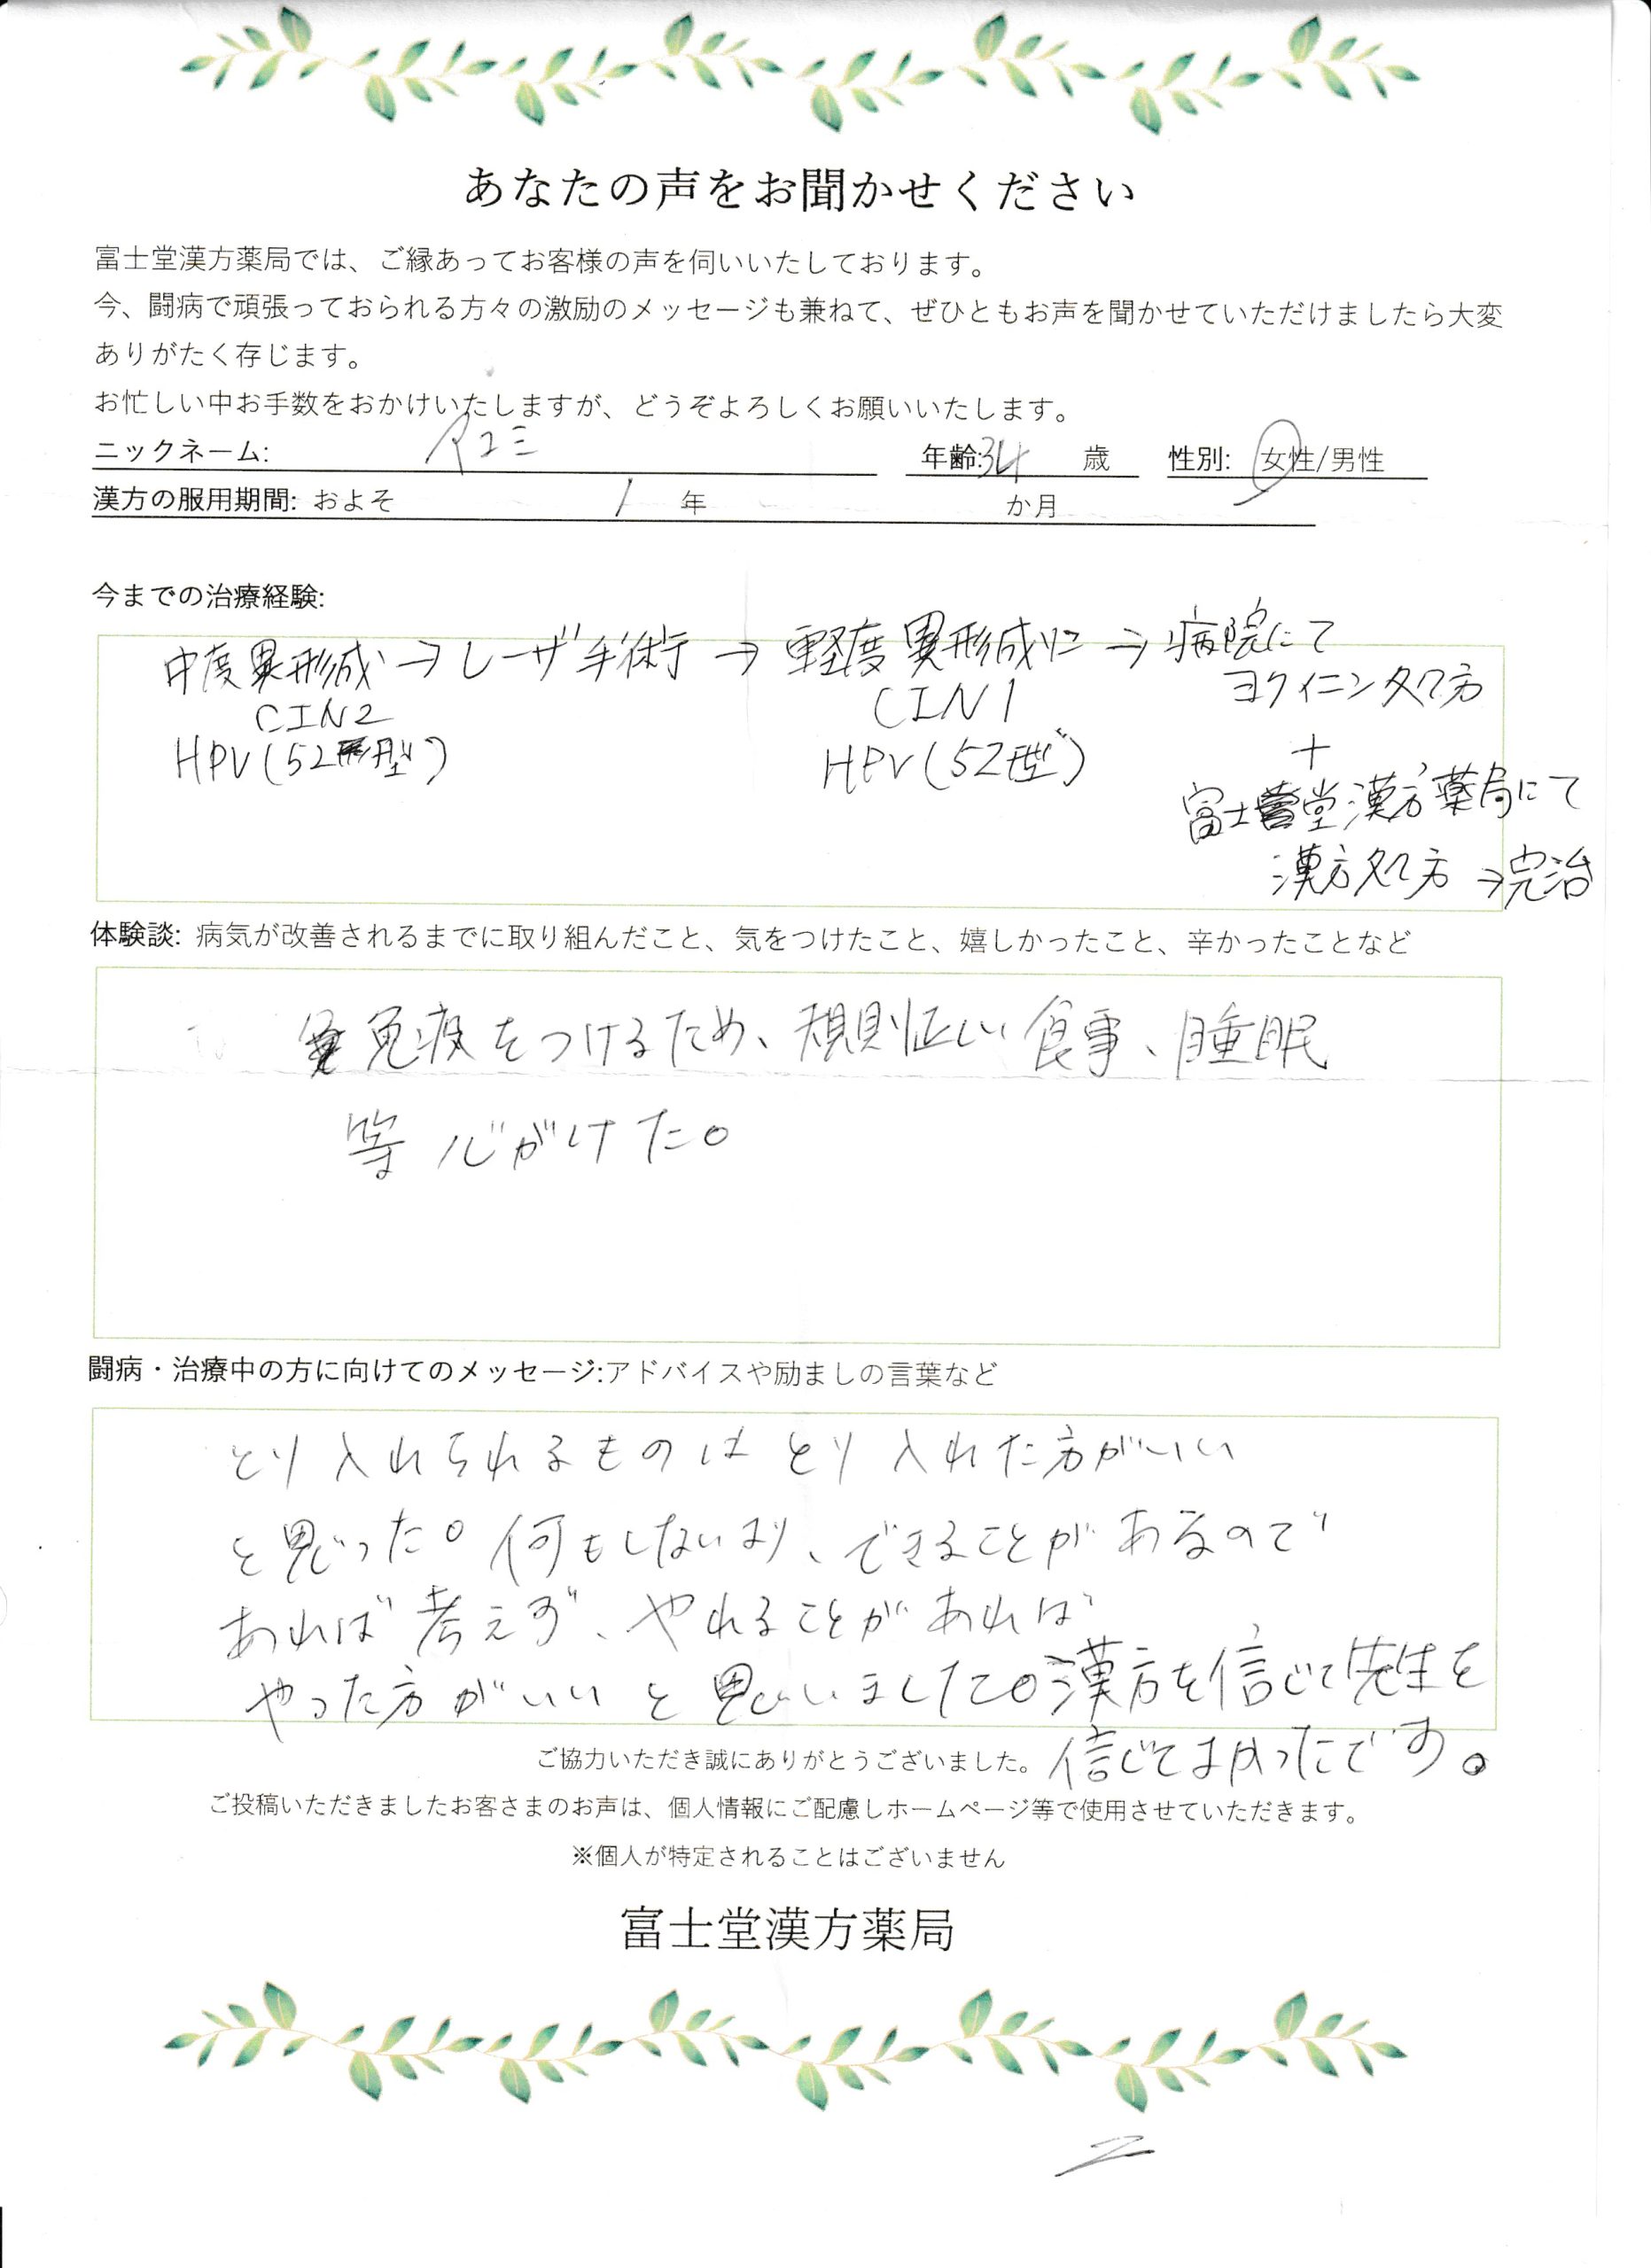 あなたの声をお聞かせください
富士堂漢方薬局では、ご縁あってお客様の声を伺いいたしております。
今、闘病で頑張っておられる方々の激励のメッセージも兼ねて、ぜひともお声を聞かせていただけましたら大変
ありがたく存じます。
お忙しい中お手数をおかけいたしますが、どうぞよろしくお願いいたします。
ニックネーム: アユミ 年齢:34 歳 性別: 女性/男性
漢方の服用期間: およそ 1 年 か月
今までの治療経験:
中度異形成→レーザ手術→軽度異形成に→病院にて
ヨクイニン処方
CIN2 CIN1
HPV(52型) HPV(52型)
+
富士堂漢方薬局にて
漢方処方→完治
体験談: 病気が改善されるまでに取り組んだこと、気をつけたこと、嬉しかったこと、辛かったことなど
免疫をつけるため、規則正しい食事、睡眠
等心がけた。
闘病・治療中の方に向けてのメッセージ:アドバイスや励ましの言葉など
とり入れられるものはとり入れた方がいい
と思った。何もしないより、できることがあるので
あれば考えず、やれることがあれば
やった方がいいと思いました。漢方を信じて先生を
信じてよかったです。
ご協力いただき誠にありがとうございました。
ご投稿いただきましたお客さまのお声は、個人情報にご配慮しホームページ等で使用させていただきます。
※個人が特定されることはございません
富士堂漢方薬局